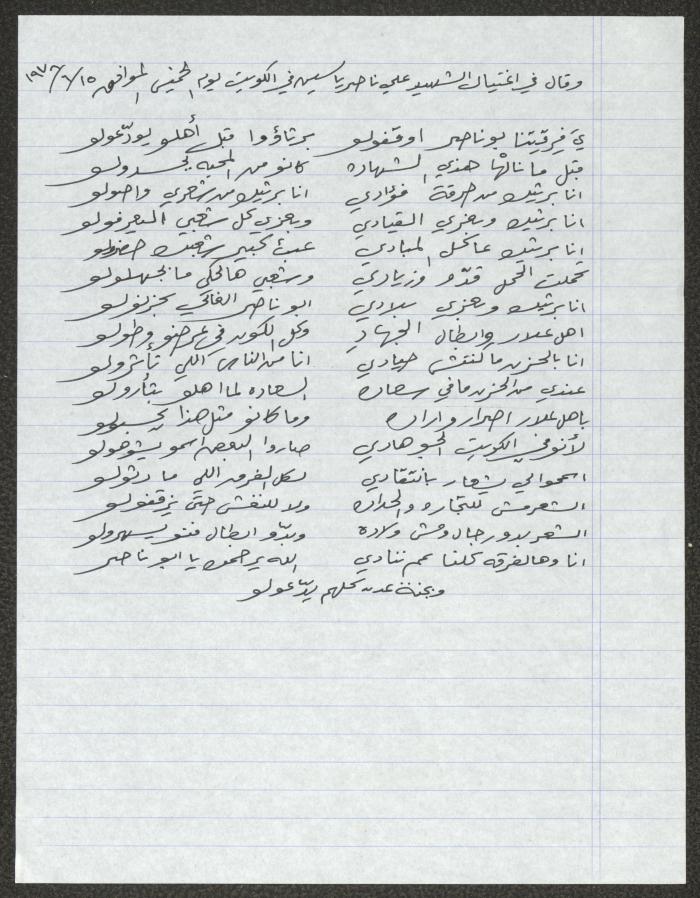 وقال في اغتيال الشهيد علي ناصر ياسين في الكويت يوم الخميس الموافق ١٥/٦/١٩٧٨
يَ فرقيتنا بو ناصر اوقفولو برثاؤوا قبل أهلو يودّعولو
قبل ما نالها هذي الشهاده كانو من المحبه يحسدولو
انا برثيك من حرقة فؤادي انا برثيك من شعري واصولو
انا برثيك وبعزي القيادي وبعزي كل شعبي اليعرفولو
انا برثيك عا كل المبادي شعبك حضرولو
تحملت الحمل قدّو وزيادي وشعبي هالحكي ما بجهلولو
انا برثيك وبعزي بلادي ابو ناصر الغالي بحزنولو
اهل عدلا وابطال الجهاد وكل الكون في عرضو وطولو
انا بالحزن ما كنتش حيادي انا من الناس اللي تأثرولو
عندي من الحزن ما في سعاده السعاده لما اهلو بتأرولو
يا هل اصرار واراده وما كانو مثل هذا
لأنو في الكويت صاروا البعض اسمو يشوهولو
اسمحوا لي بشعار بانتقادي لكل الفرق اللي ما رثولو
الشعر مش للتجاره والحداده ولا للنقش حتى يزقفولو
الشعر بدو رجال ومش ولاده وبدّو ابطال فنو يسهرولو
انا وهالفرقه كلنا عم ننادي الله يرحمك يا ابو ناصر
وبجنة عدن كلهم يدّعولو